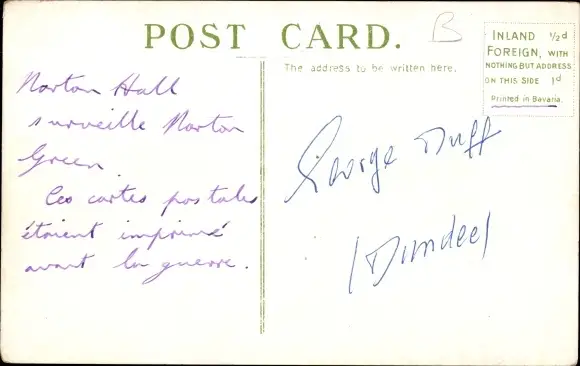 POST CARD.
B
INLAND ½d
FOREIGN, WITH
NOTHING BUT ADDRESS
ON THIS SIDE 1d
Printed in Bavaria.
The address to be written here.
Norton Hall
surveille Norton
Green.
Ces cartes postales
étaient imprimé
avant la guerre.
George Duff
(Dundee)